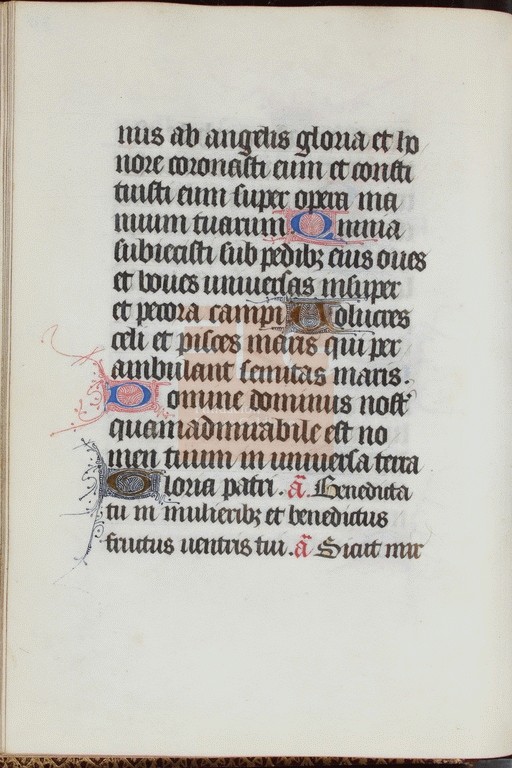 nus ab angelis gloria et ho
nore coronasti eum et consti
tuisti eum super opera ma
nuum tuarum Omnia
subiecisti sub pedibꝫ eius oues
et boues uniuersas insuper
et pecora campi Uolucres
celi et pisces maris qui per
ambulant semitas maris.
Domine dominus nost̃
quam admirabile est no
men tuum in uniuersa terra
Gloria patri. a͠. Benedicta
tu in mulieribꝫ et benedictus
fructus uentris tui. a͠ Sicut mir